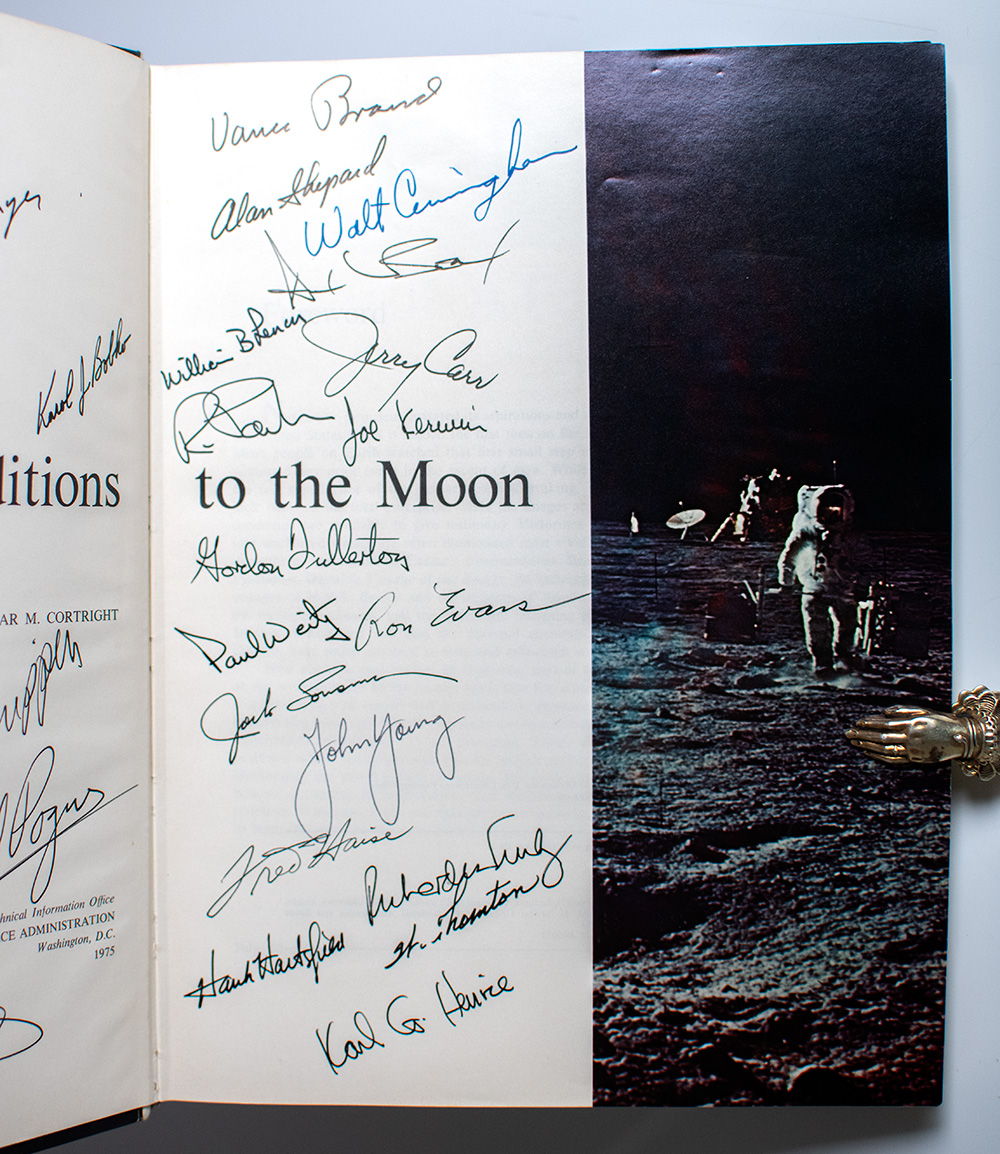 Karol J Bobko
ditions
AR M. CORTRIGHT
Pogue
hnical Information Office
CE ADMINISTRATION
Washington, D.C.
1975
Vance Brand
Alan Shepard
Walt Cunningham
William B Lenoir
Jerry Carr
Joe Kerwin
to the Moon
Gordon Fullerton
Paul Weitz
Ron Evans
Jack Lousma
John Young
Fred Haise
Richard H Truly
Hank Hartsfield
W. Thornton
Karl G. Henize